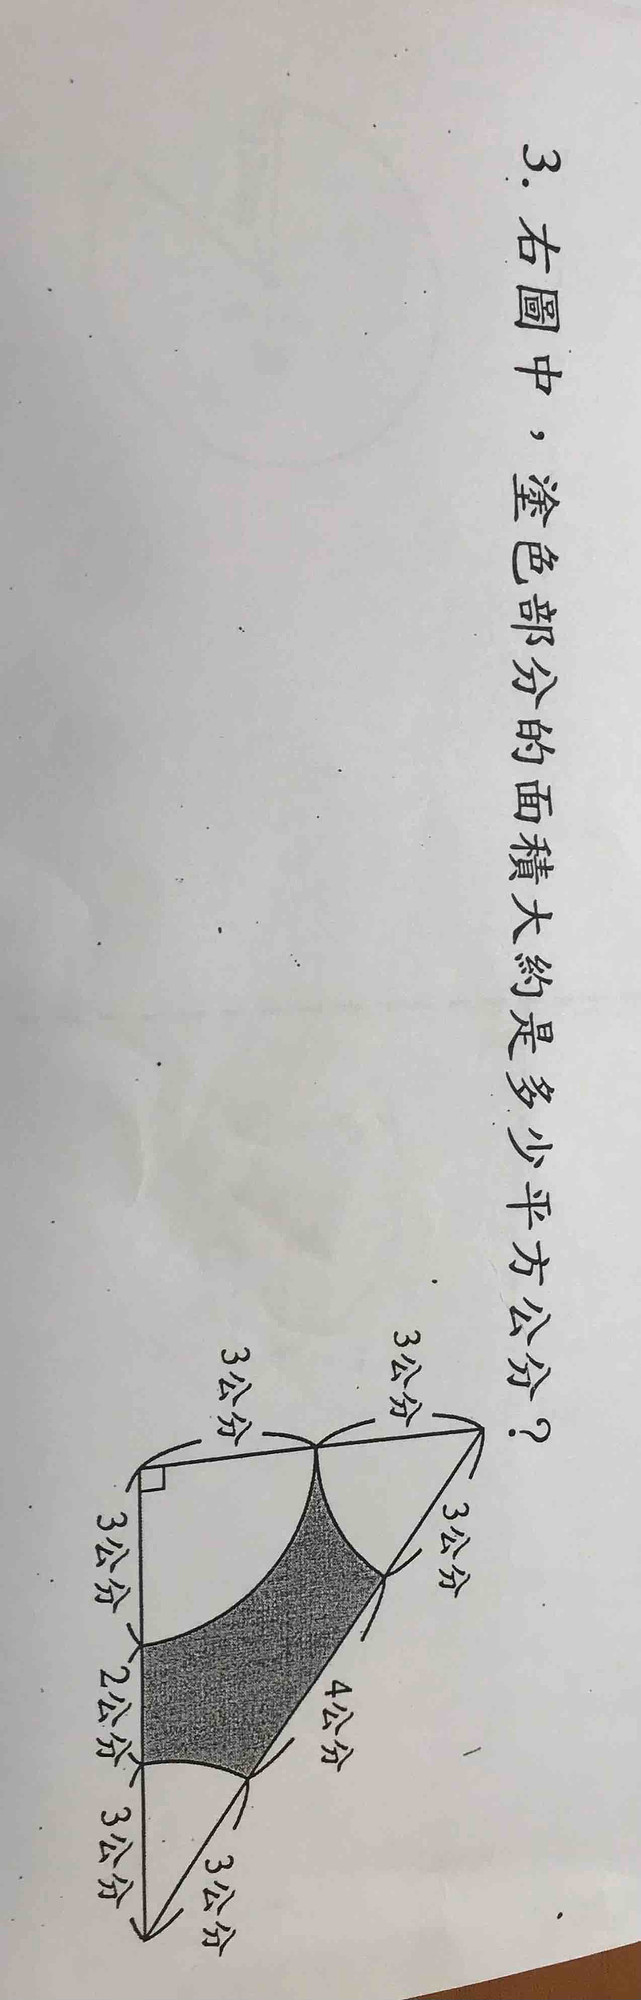 3. 右圖中，塗色部分的面積大約是多少平方公分？
3公分
3公分
3公分
4公分
3公分
3公分
2公分
3公分